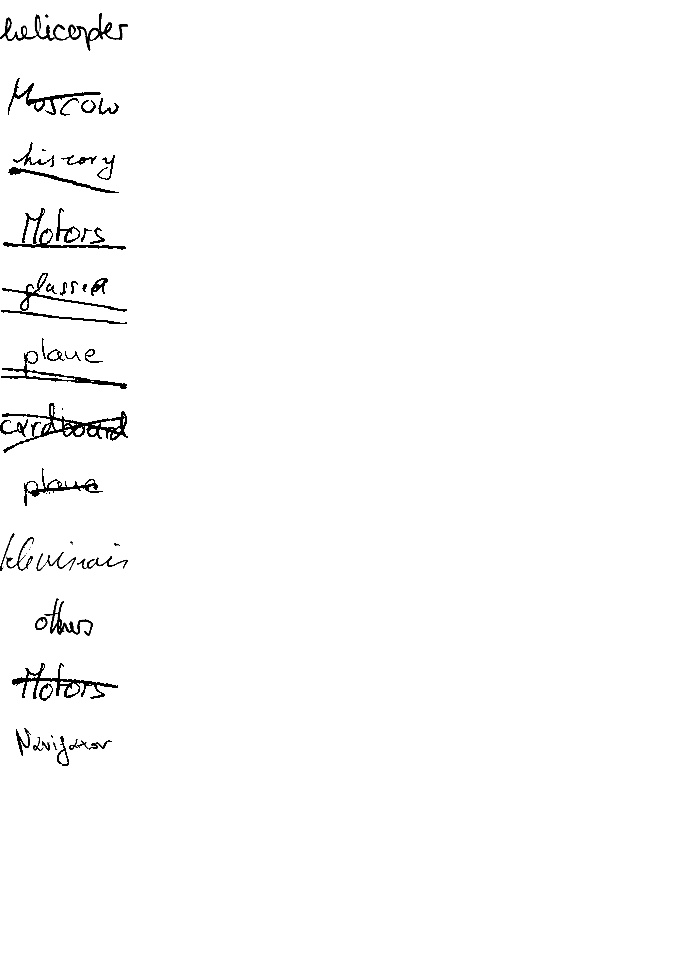 helicopter
Moscow
history
Motors
glasses
plane
cardboard
plane
televisions
others
Motors
Navigator